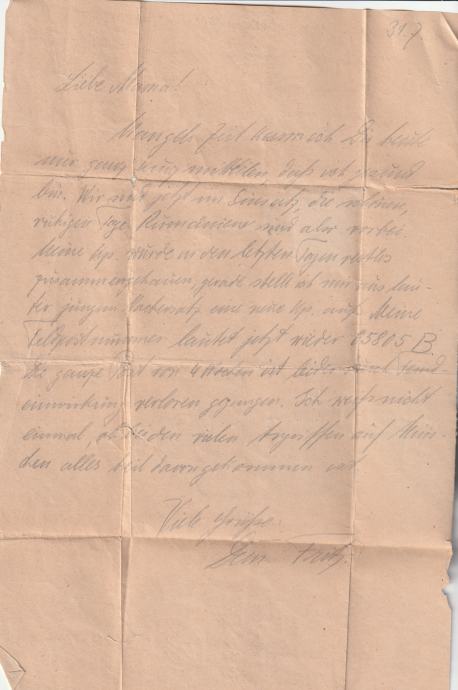 31.7.
Liebe Mama!
Mangels Zeit kann ich Dir heute
nur ganz kurz mitteilen, daß ich gesund
bin. Wir sind jetzt im Einsatz, die schönen,
ruhigen Tage Rumäniens sind also vorbei.
Meine Kp. wurde in den letzten Tagen restlos
zusammengehauen, gerade stelle ich mir aus lau-
ter jungem Nachersatz eine neue Kp. auf. Meine
Feldpostnummer lautet jetzt wieder 05805 B.
Die ganze Post von 4 Wochen ist leider durch Feind-
einwirkung verloren gegangen. Ich weiß nicht
einmal, ob bei den vielen Angriffen auf Mün-
chen alles heil davongekommen ist.
Viele Grüße
Dein Fritz.